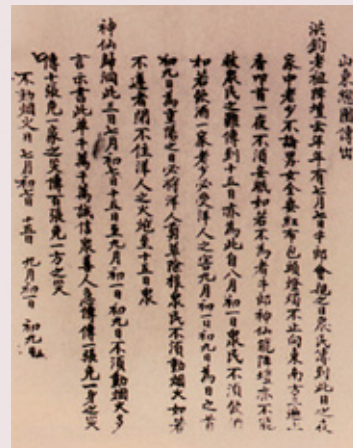 山東總團傳出
洪鈞老祖降壇云年年有七月七日牛郎會親之日衆民傳到此日也夜
家中老少不論男女全要紅布包頭燈燭不止向東南方三遍上
香叩首一夜不須安眠如若不爲者牛郎神仙能降壇亦不能
救衆民之難傳到十五日亦爲此自八月初一日衆民不須飲酒
如若飲酒一家老少必受洋人之害九月初一日初九日萬日之首
初九日爲重陽之日必將洋人剪草除根衆民不須動烟火如若
不遵者閉不住洋人之火炮至十五日衆
神仙歸洞此三日七月初七日十五日至九月初一日初九日不須動烟火多
言示書此單千萬千萬誠信衆善人急傳傳一張免一身之災
傳十張免一家之災傳百張免一方之災
不動烟火日七月初七日 十五日 九月初一日 初九日